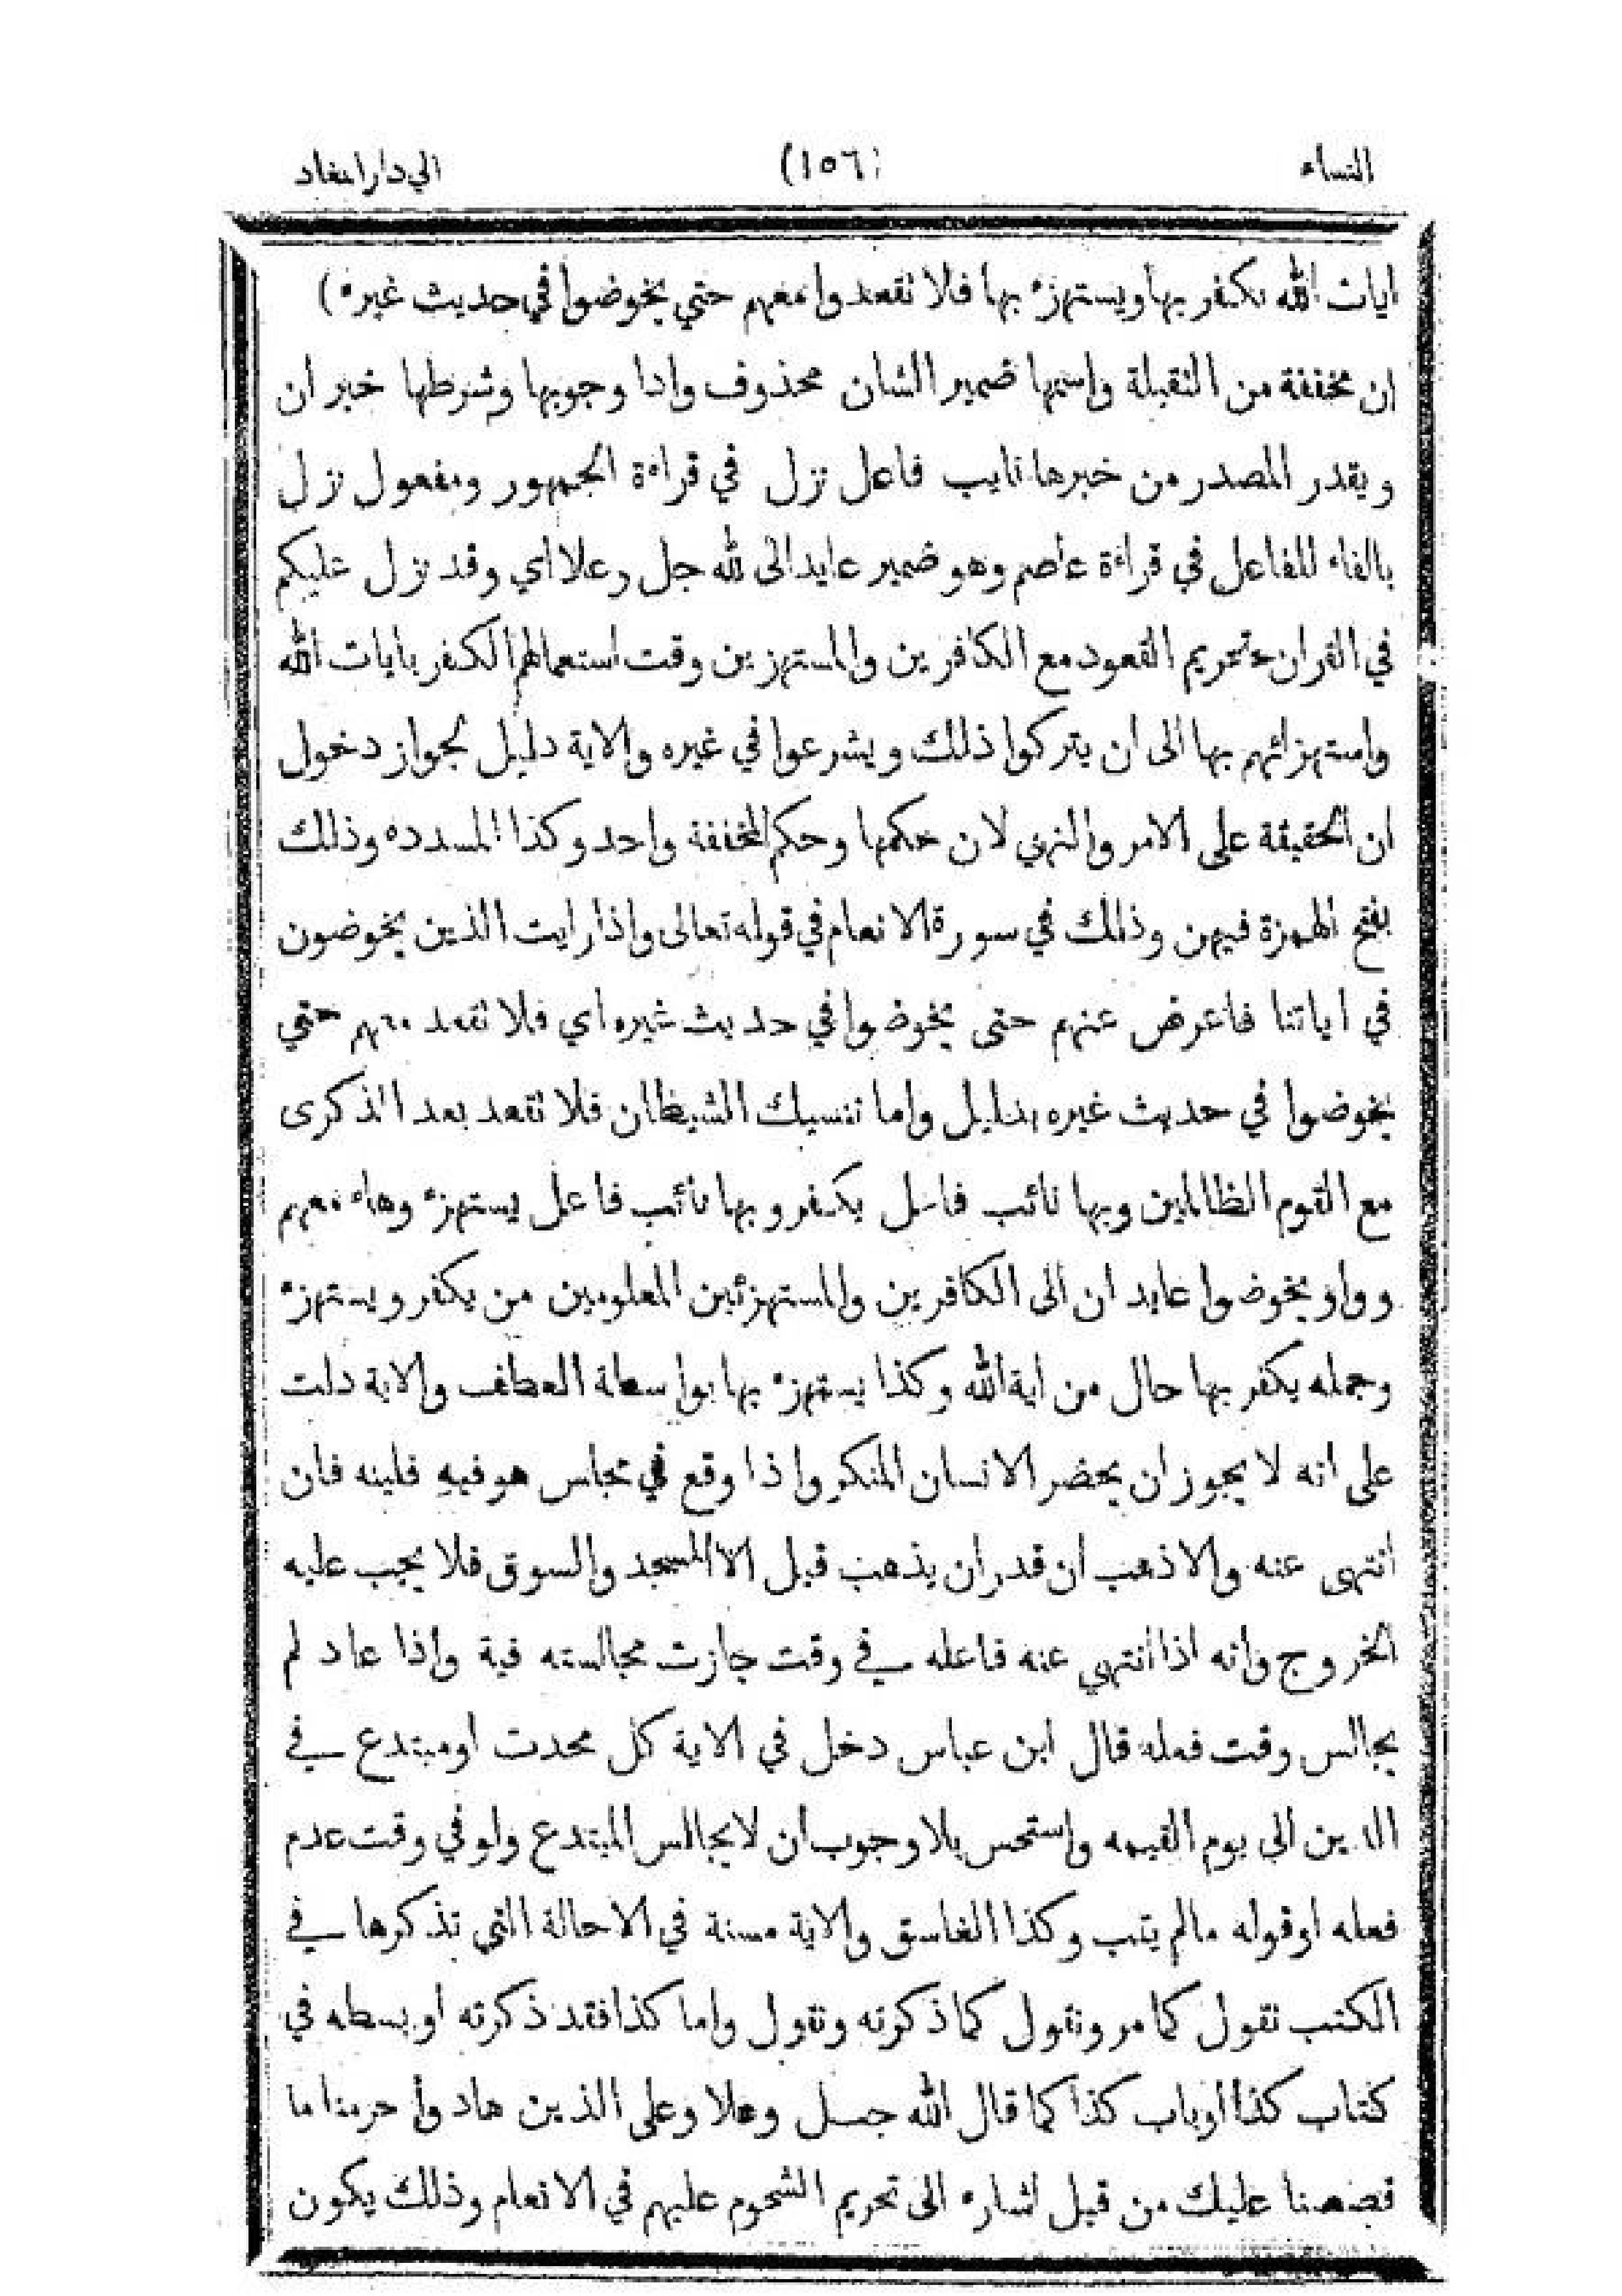 النساء (١٥٦) الي دار المعاد
ايات الله يكفر بها ويستهزء بها فلا تقعدوا معهم حتي يخوضوا في حديث غيره )
ان مخففة من الثقيلة واسمها ضمير الشان محذوف واذا وجوبها وشرطها خبر ان
ويقدر المصدر من خبرها نايب فاعل نزل في قراءة الجمهور ومفعول نزل
بالفاء للفاعل في قراءة عاصم وهو ضمير عايد الى لله جل وعلا اي وقد نزل عليكم
في القران تحريم القعود مع الكافرين والمستهزين وقت استعمالهم الكفر بايات الله
واستهزائهم بها الى ان يتركوا ذلك ويشرعوا في غيره والاية دليل لجواز دخول
ان الحقيقة على الامر والنهي لان حكمها وحكم المخففة واحد وكذا المسدده وذلك
بفتح الهمزة فيهن وذلك في سورة الانعام في قوله تعالى واذا رايت الذين يخوضون
في اياتنا فاعرض عنهم حتى يخوضوا في حديث غيره اي فلا تقعد معهم حتي
يخوضوا في حديث غيره بدليل واما ننسيك الشيطان فلا تقعد بعد الذكرى
مع القوم الظالمين وبها نائب فاعل يكفر وبها نائب فاعل يستهزء وهاء معهم
وواو يخوضوا عايد ان الى الكافرين والمستهزئين المعلومين من يكفر ويستهزء
وجمله يكفر بها حال من اية الله وكذا يستهزء بها بواسطة العطف والاية دلت
على انه لا يجوز ان يحضر الانسان المنكر واذا وقع في مجلس هو فيه فلينه فان
انتهى عنه والا ذهب ان قدر ان يذهب قيل الا المسجد والسوق فلا يجب عليه
الخروج وانه اذا انتهي عنه فاعله في وقت جازت مجالسته فية واذا عاد لم
يجالس وقت فعله قال ابن عباس دخل في الاية كل محدت او مبتدع في
الدين الى يوم القيمه واستحس بلا وجوب ان لا يجالس المبتدع ولو في وقت عدم
فعله او قوله مالم يتب وكذا الفاسق والاية مسنة في الاحالة التي تذكرها في
الكتب نقول كما مر ونقول كما ذكرته ونقول واما كذا فقد ذكرته او بسطه في
كتاب كذا او باب كذا كما قال الله جل وعلا وعلى الذين هادوا حرمنا ما
قصصنا عليك من قبل اشاره الى تحريم الشحوم عليهم في الانعام وذلك يكون